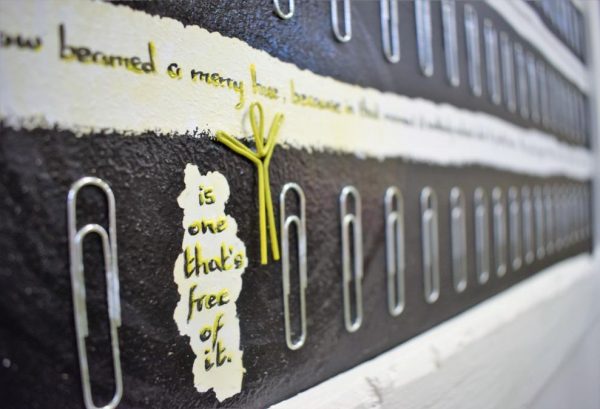 ow beamed a merry hue, because in that moment it
is
one
that's
free
of
it.